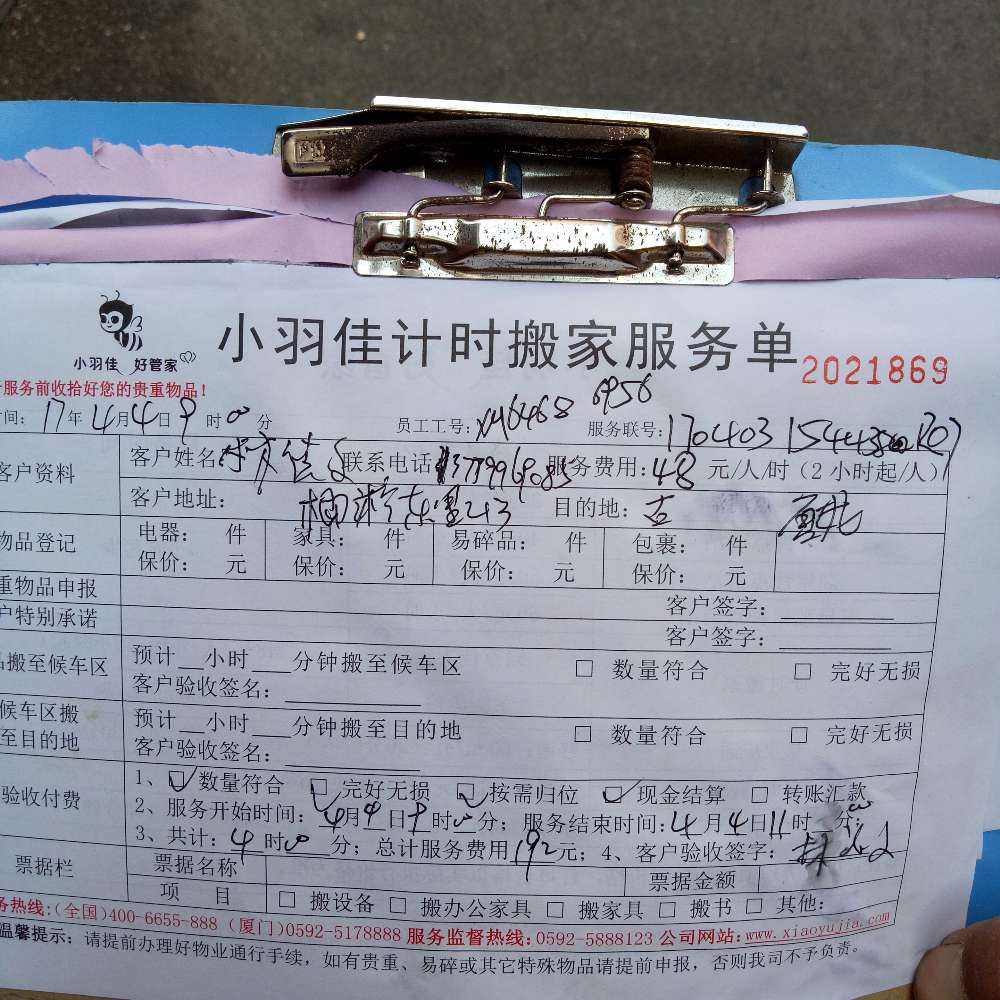 小羽佳 好管家
小羽佳计时搬家服务单 2021869
服务前收拾好您的贵重物品!
间: 17年4月4日9时00分 员工工号: 服务联号:
6956
客户资料 客户姓名: 联系电话 服务费用:48元/人/时(2小时起/人)
客户地址: 目的地:
物品登记 电器: 件 家具: 件 易碎品: 件 包裹: 件
保价: 元 保价: 元 保价: 元 保价: 元
重物品申报 客户签字:
户特别承诺 客户签字:
品搬至候车区 预计__小时__分钟搬至候车区 □ 数量符合 □ 完好无损
客户验收签名:
候车区搬至目的地 预计__小时__分钟搬至目的地 □ 数量符合 □ 完好无损
客户验收签名:
验收付费 1、☑数量符合 ☑完好无损 ☑按需归位 ☑现金结算 □ 转账汇款
2、服务开始时间:4月4日9时00分; 服务结束时间:4月4日11时00分;
3、共计:4时00分; 总计服务费用192元; 4、客户验收签字:
票据栏 票据名称 票据金额
项 目 □ 搬设备 □ 搬办公家具 □ 搬家具 □ 搬书 □ 其他:
务热线:(全国)400-6655-888 (厦门)0592-5178888 服务监督热线:0592-5888123 公司网站:www.xiaoyujia.com
温馨提示: 请提前办理好物业通行手续,如有贵重、易碎或其它特殊物品请提前申报,否则我司不予负责。